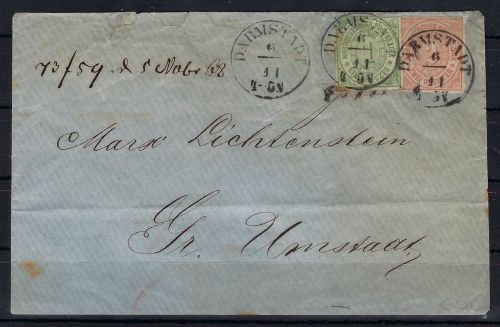 DARMSTADT
6
11
4-5N
DARMSTADT
6
11
4-5N
DARMSTADT
6
11
4-5N
73/59 d 5 Nobr 68
Marx Lichtenstein
Gr. Umstadt